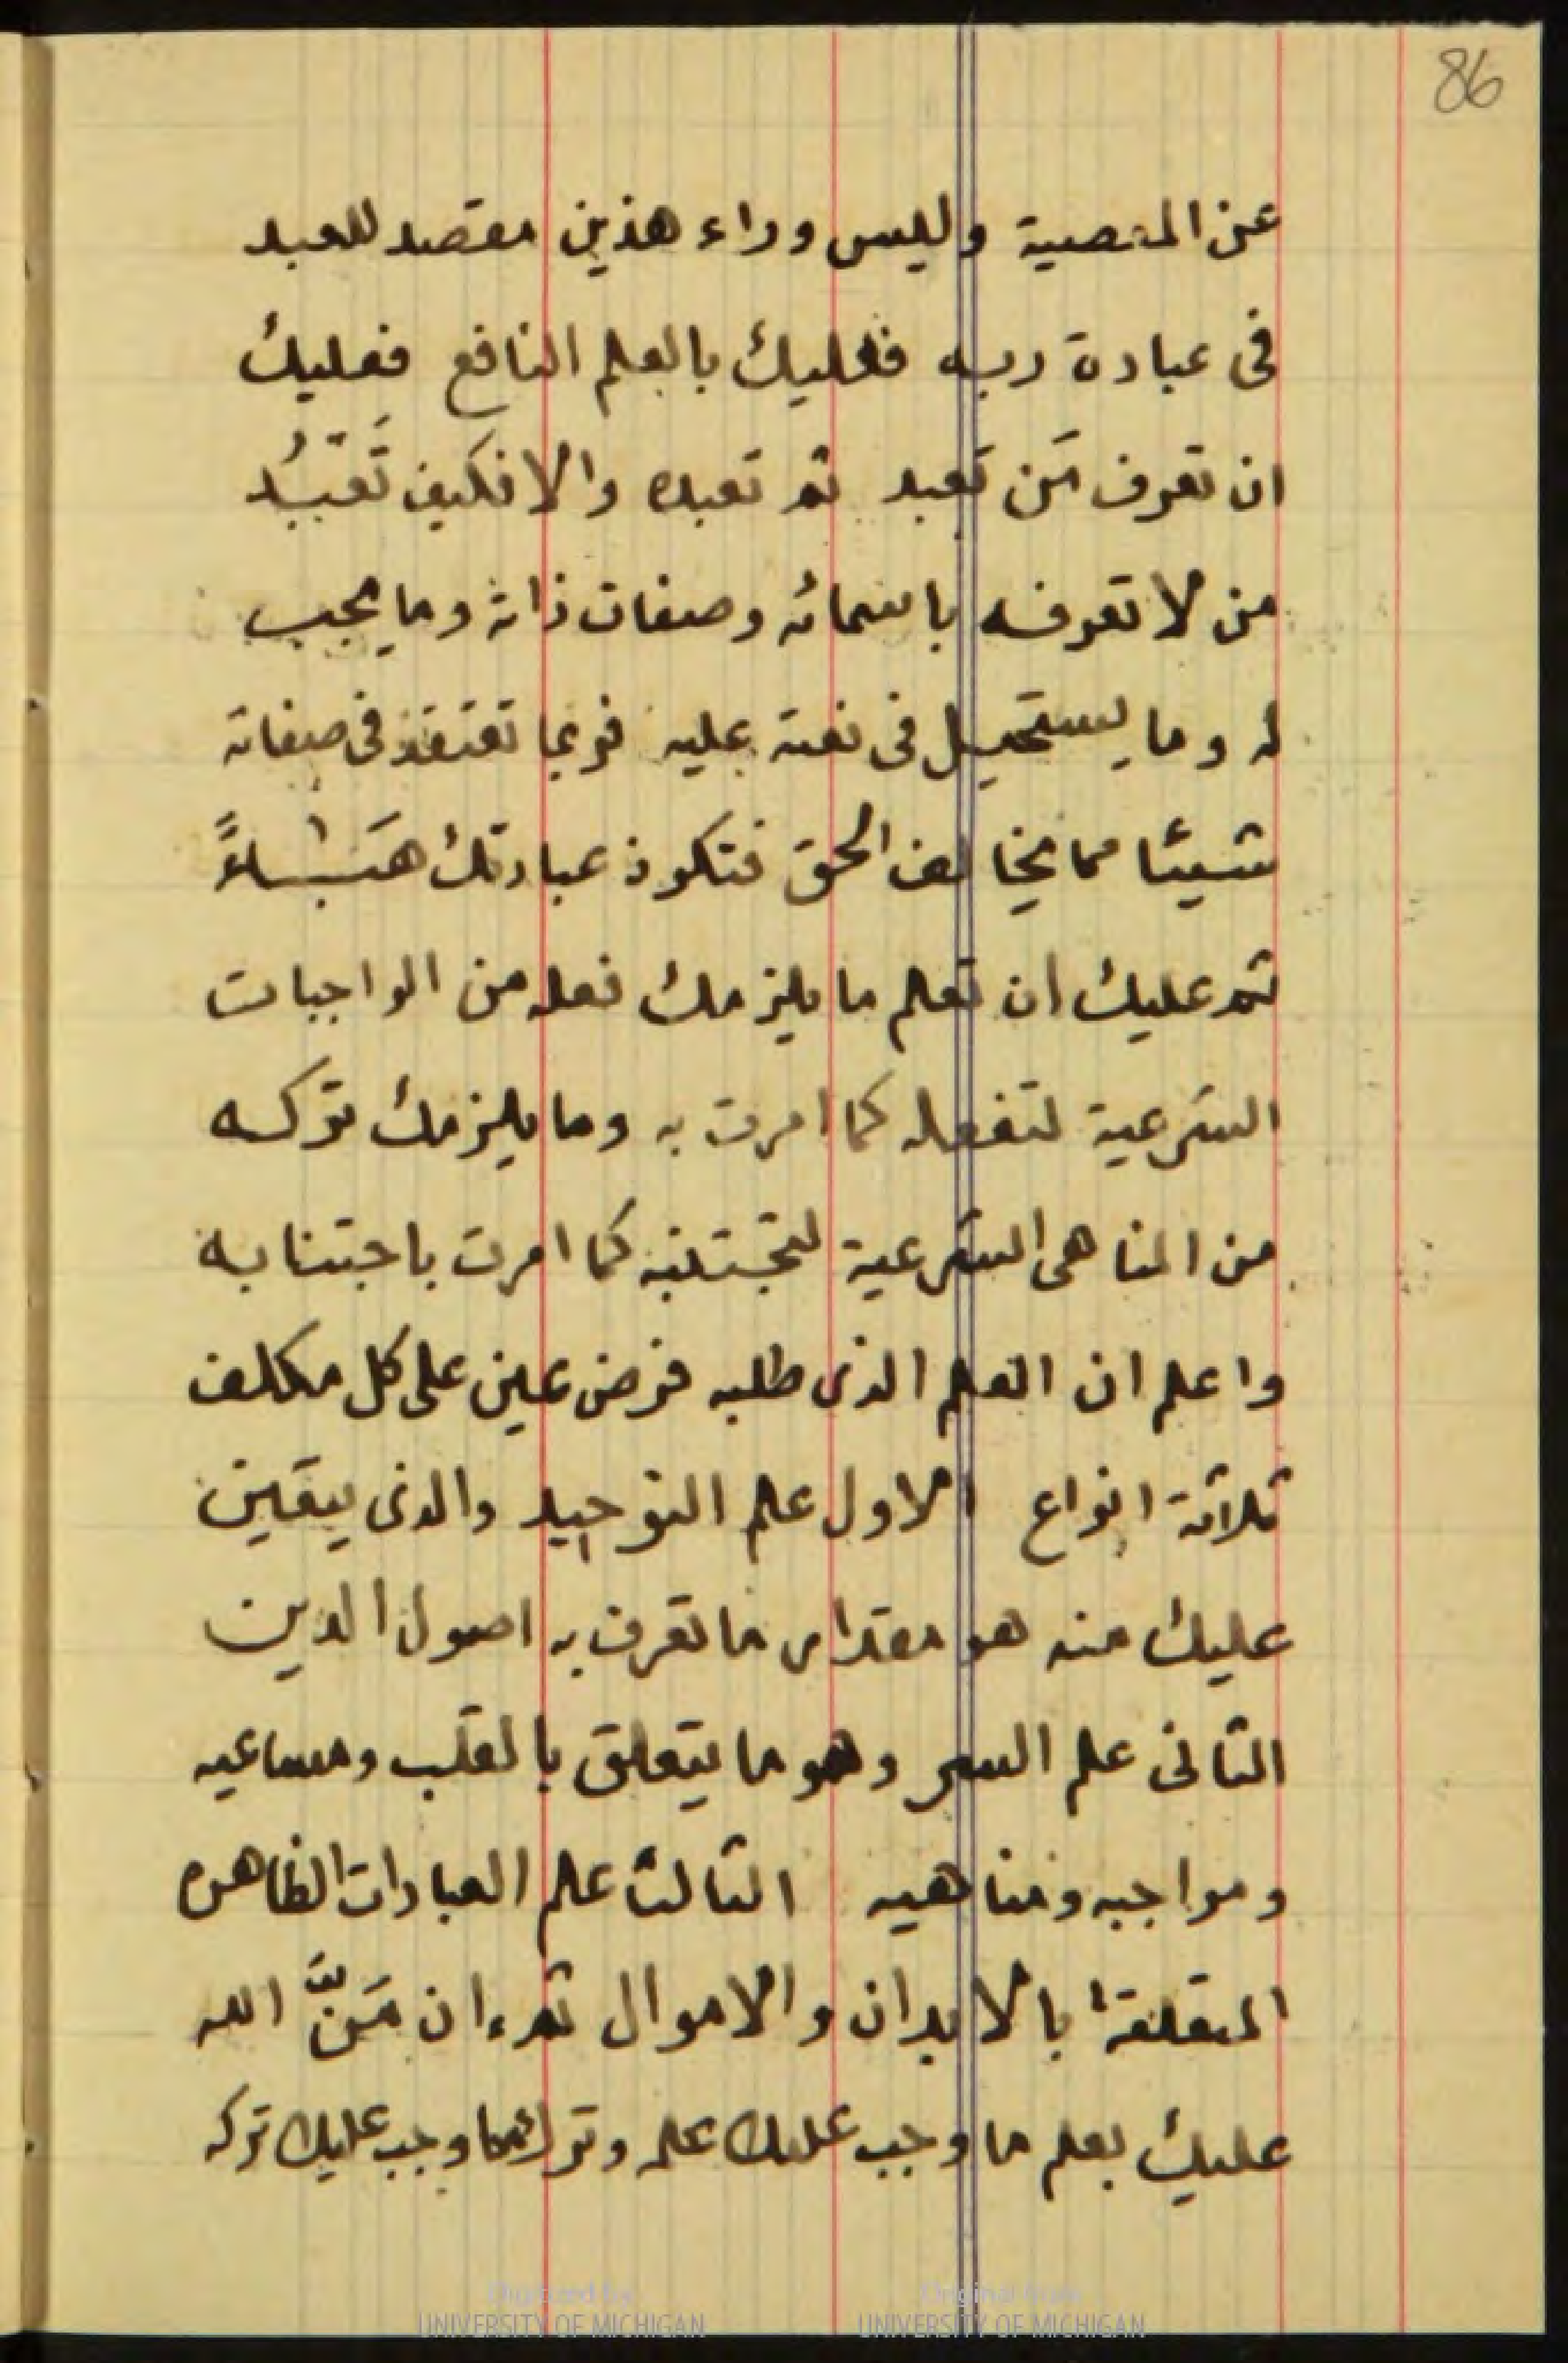 86
عن المعصية وليس وراء هذين مقصد للعبد
فى عبادة ربه فعليك بالعلم النافع فعليك
ان تعرف مَن تعبد ثم تعبده والا فكيف تَعْبُد
من لا تعرفه باسمائه وصفات ذاته وما يجب
له وما يستحيل فى نعته عليه فربما تعتقد فى صفاته
شيئا مما يخالف الحق فتكون عبادتك هَبَاءً
ثم عليك ان تعلم ما يلزمك فعله من الواجبات
الشرعية لتفعله كما امرت به وما يلزمك تركه
من المناهى الشرعية لتجتنبه كما امرت باجتنابه
واعلم ان العلم الذى طلبه فرض عين على كل مكلف
ثلاثة انواع الاول علم التوحيد والذى يتعين
عليك منه هو مقدار ما تعرف به اصول الدين
الثانى علم السر وهو ما يتعلق بالقلب ومساعيه
ومواجبه ومناهيه الثالث علم العبادات الظاهره
المتعلقة بالابدان والاموال ثم ان مَنَّ الله
عليك بعلم ما وجب عليك علمه وترك ما وجب عليك تركه
Digitized by
UNIVERSITY OF MICHIGAN
Original from
UNIVERSITY OF MICHIGAN